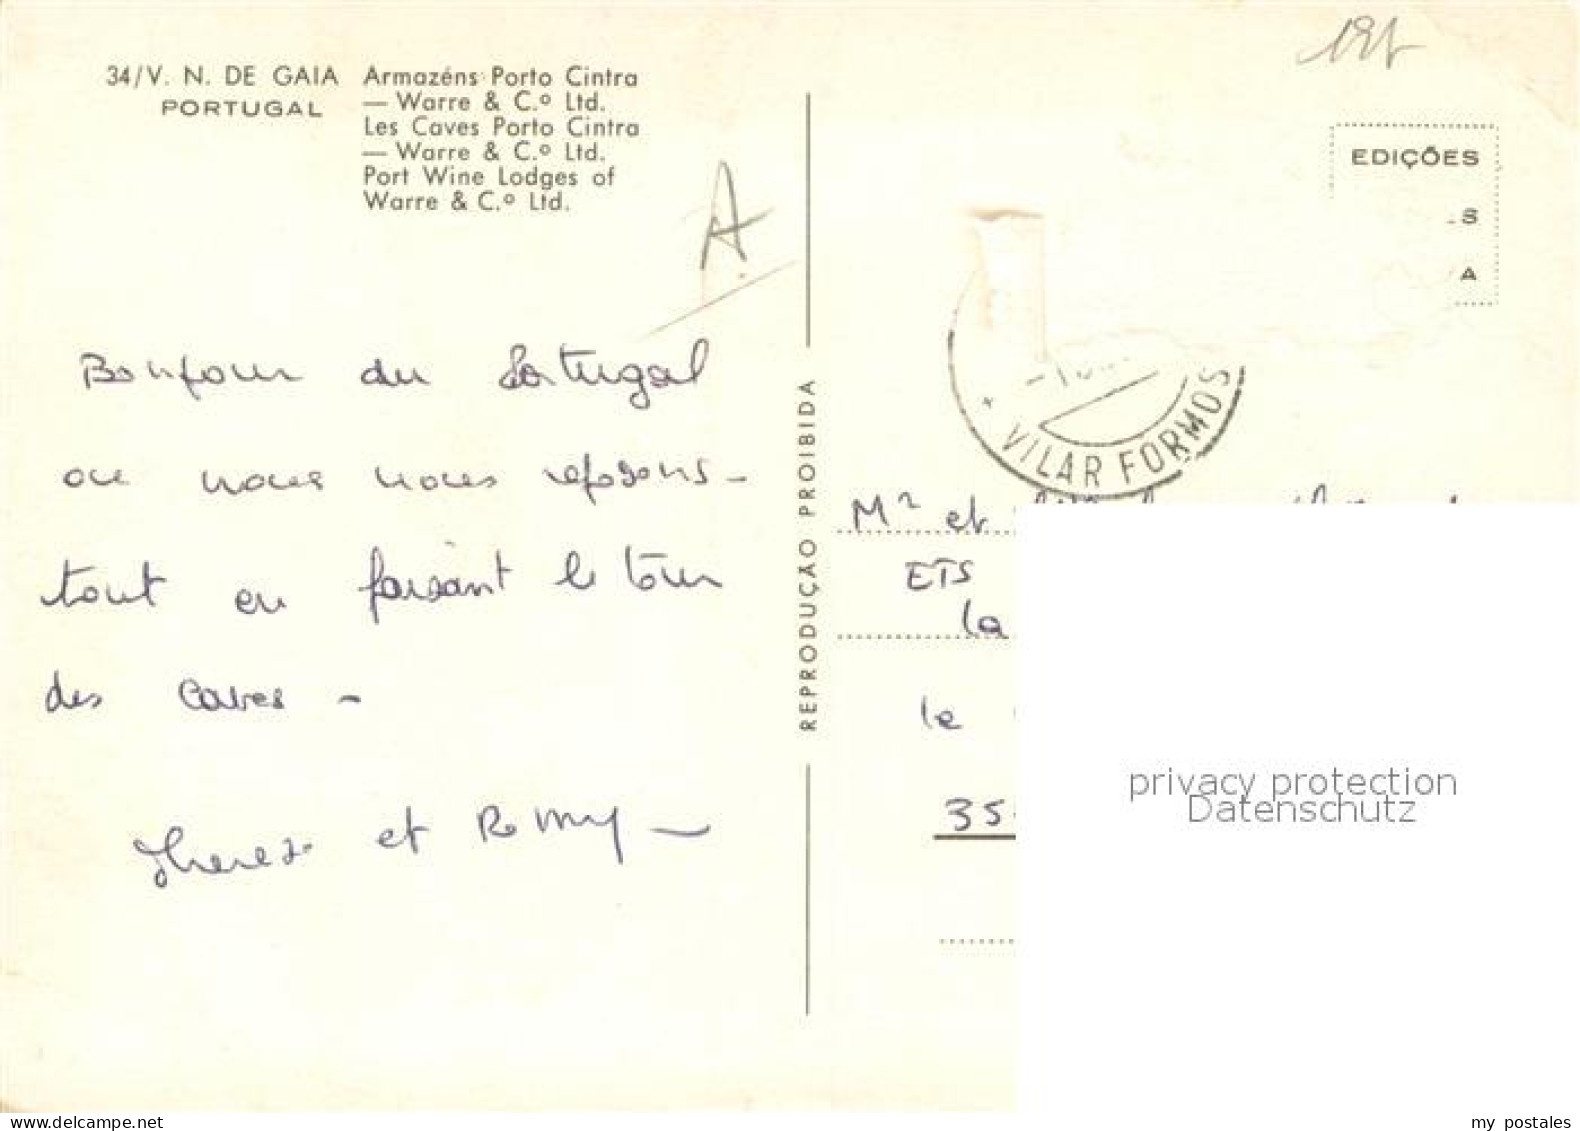 34/V. N. DE GAIA
PORTUGAL
Armazéns Porto Cintra
— Warre & C.º Ltd.
Les Caves Porto Cintra
— Warre & C.º Ltd.
Port Wine Lodges of
Warre & C.º Ltd.
A
Bonjour du Portugal
ou nous nous reposons -
tout en faisant le tour
des caves -
et Romy -
REPRODUÇÃO PROIBIDA
EDIÇÕES
S
A
VILAR FORMOS
Mr et
ETS
la
le
35
privacy protection
Datenschutz
delcampe.net
my postales